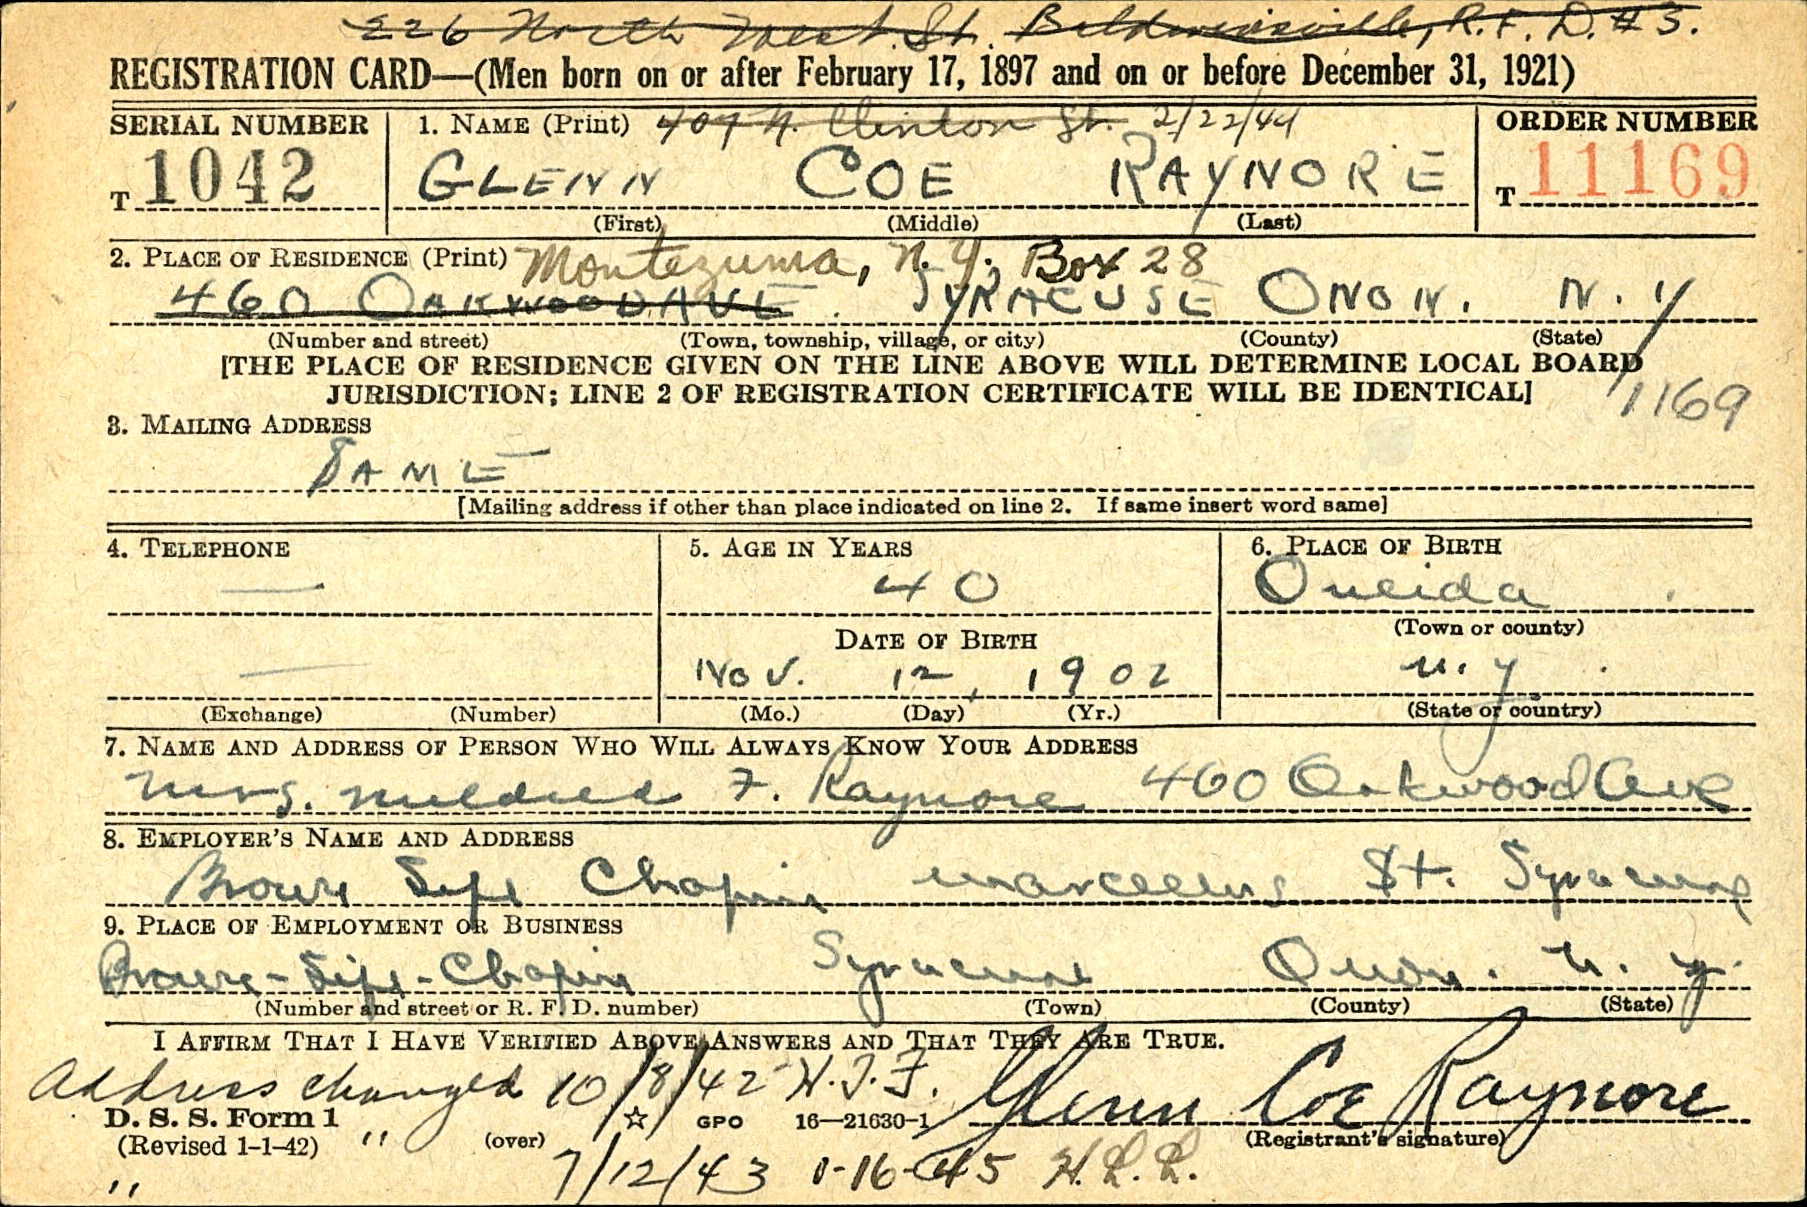 226 North West St. Baldwinsville, R.F.D. #3.
REGISTRATION CARD—(Men born on or after February 17, 1897 and on or before December 31, 1921)
SERIAL NUMBER 1. NAME (Print) 407 N. Clinton St. 2/22/44 ORDER NUMBER
T 1042 GLENN COE RAYNORE T 11169
(First) (Middle) (Last)
2. PLACE OF RESIDENCE (Print) Montezuma, N.Y. Box 28
460 OAKWOOD AVE. SYRACUSE ONON. N.Y
(Number and street) (Town, township, village, or city) (County) (State)
[THE PLACE OF RESIDENCE GIVEN ON THE LINE ABOVE WILL DETERMINE LOCAL BOARD
JURISDICTION; LINE 2 OF REGISTRATION CERTIFICATE WILL BE IDENTICAL] 11169
3. MAILING ADDRESS
SAME
[Mailing address if other than place indicated on line 2. If same insert word same]
4. TELEPHONE 5. AGE IN YEARS 6. PLACE OF BIRTH
— 40 Oneida
DATE OF BIRTH (Town or county)
— Nov. 12, 1902 N.Y.
(Exchange) (Number) (Mo.) (Day) (Yr.) (State or country)
7. NAME AND ADDRESS OF PERSON WHO WILL ALWAYS KNOW YOUR ADDRESS
Mrs. Mildred F. Raynore 460 Oakwood Ave
8. EMPLOYER'S NAME AND ADDRESS
Brown Lipe Chapin Marcellus St. Syracuse
9. PLACE OF EMPLOYMENT OR BUSINESS
Brown-Lipe-Chapin Syracuse Onon. N.Y.
(Number and street or R. F. D. number) (Town) (County) (State)
I AFFIRM THAT I HAVE VERIFIED ABOVE ANSWERS AND THAT THEY ARE TRUE.
Address changed 10/8/42 H.J.F. Glenn Coe Raynore
D. S. S. Form 1 GPO 16—21630-1
(Revised 1-1-42) " (over) (Registrant's signature)
" 7/12/43 1-16-45 H.L.L.